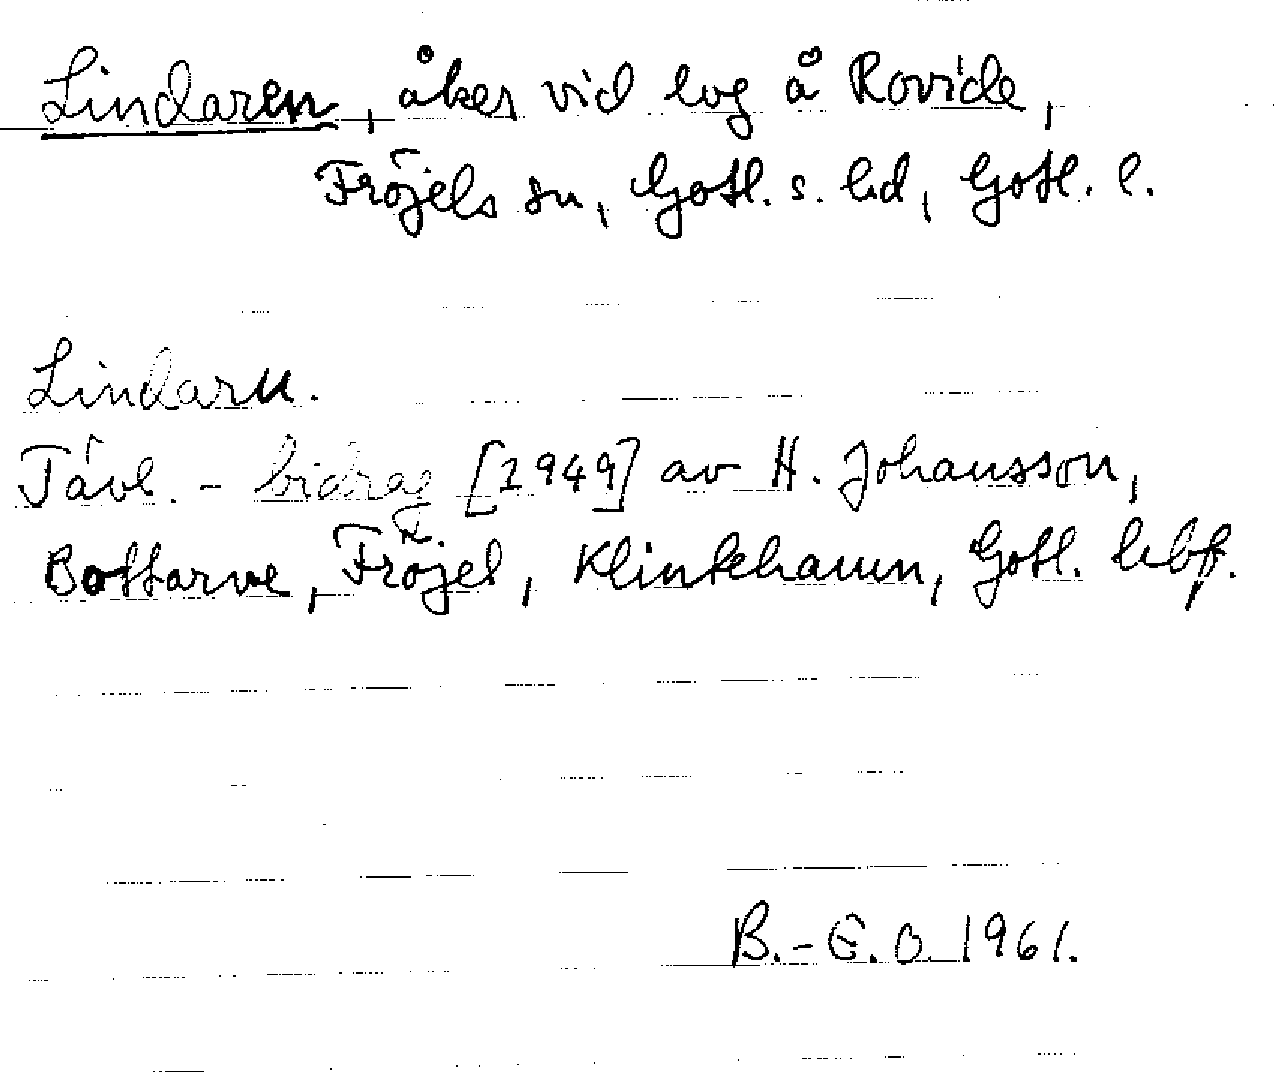 Lindaren, åker vid log å Rovide,
Fröjels sn, Gotl. s. hd, Gotl. l.
Lindarn.
Tävl.-bidrag [1949] av H. Johansson,
Bottarve, Fröjel, Klintehamn, Gotl. hbf.
B.-E. O. 1961.